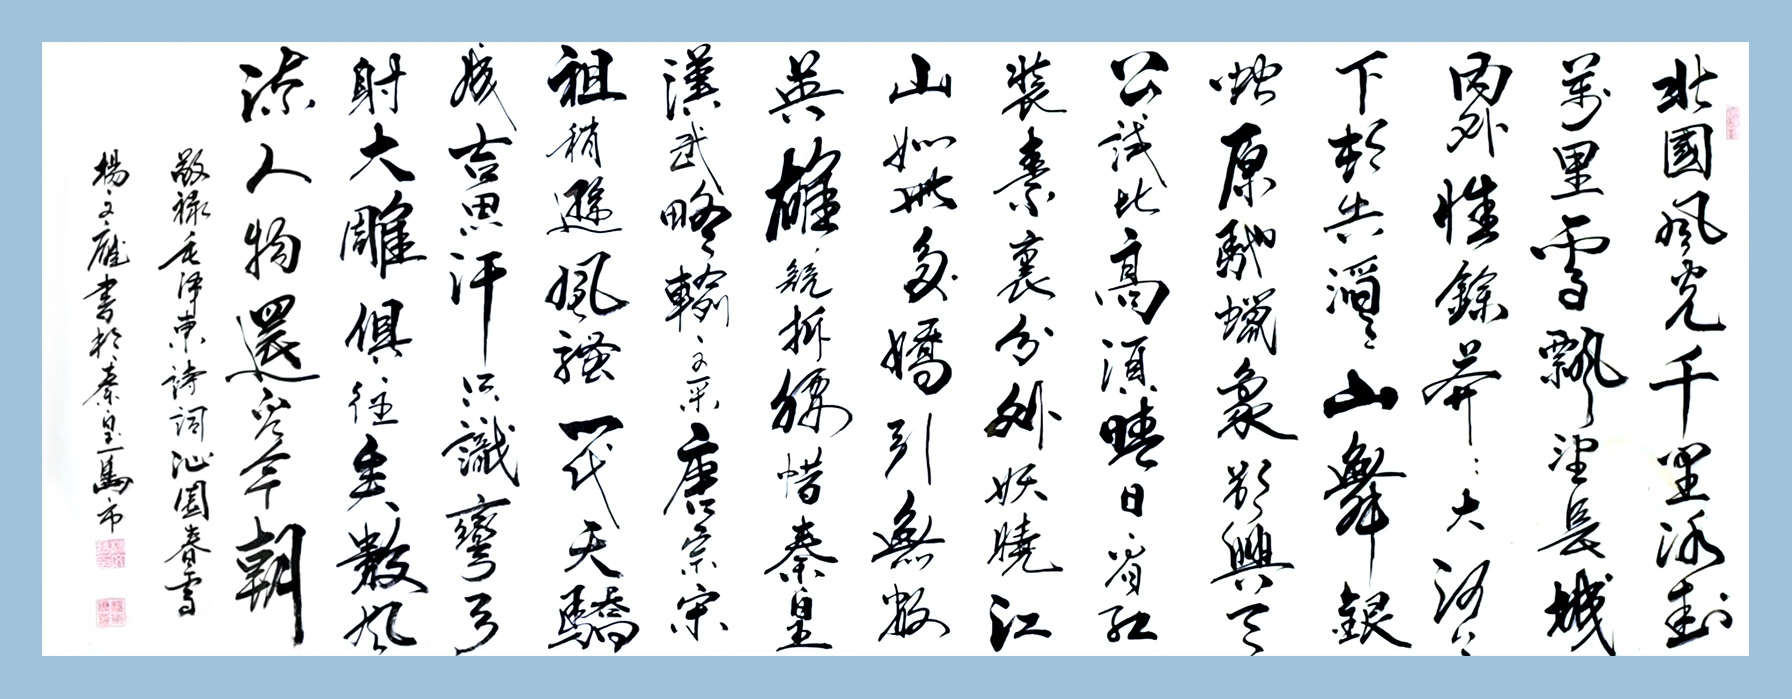 北國風光千里冰封
萬里雪飄望長城
內外惟餘莽〻大河上
下頓失滔〻山舞銀
蛇原馳蠟象欲與天
公試比高須晴日看紅
裝素裹分外妖嬈江
山如此多嬌引無數
英雄競折腰惜秦皇
漢武略輸文采唐宗宋
祖稍遜風騷一代天驕
成吉思汗只識彎弓
射大雕俱往矣數風
流人物還看今朝
敬祿毛澤東詩詞沁園春雪
楊文書於秦皇島市